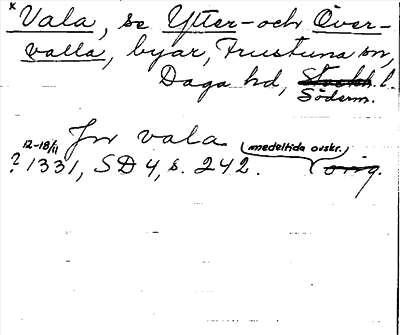 x Vala, se Ytter- och Över-
valla, byar, Frustuna sn,
Daga hd, Stockh. l.
Söderm.
Jn vala
12-18/11 (medeltida avskr.)
? 1331, SD 4, s. 242. (orig.